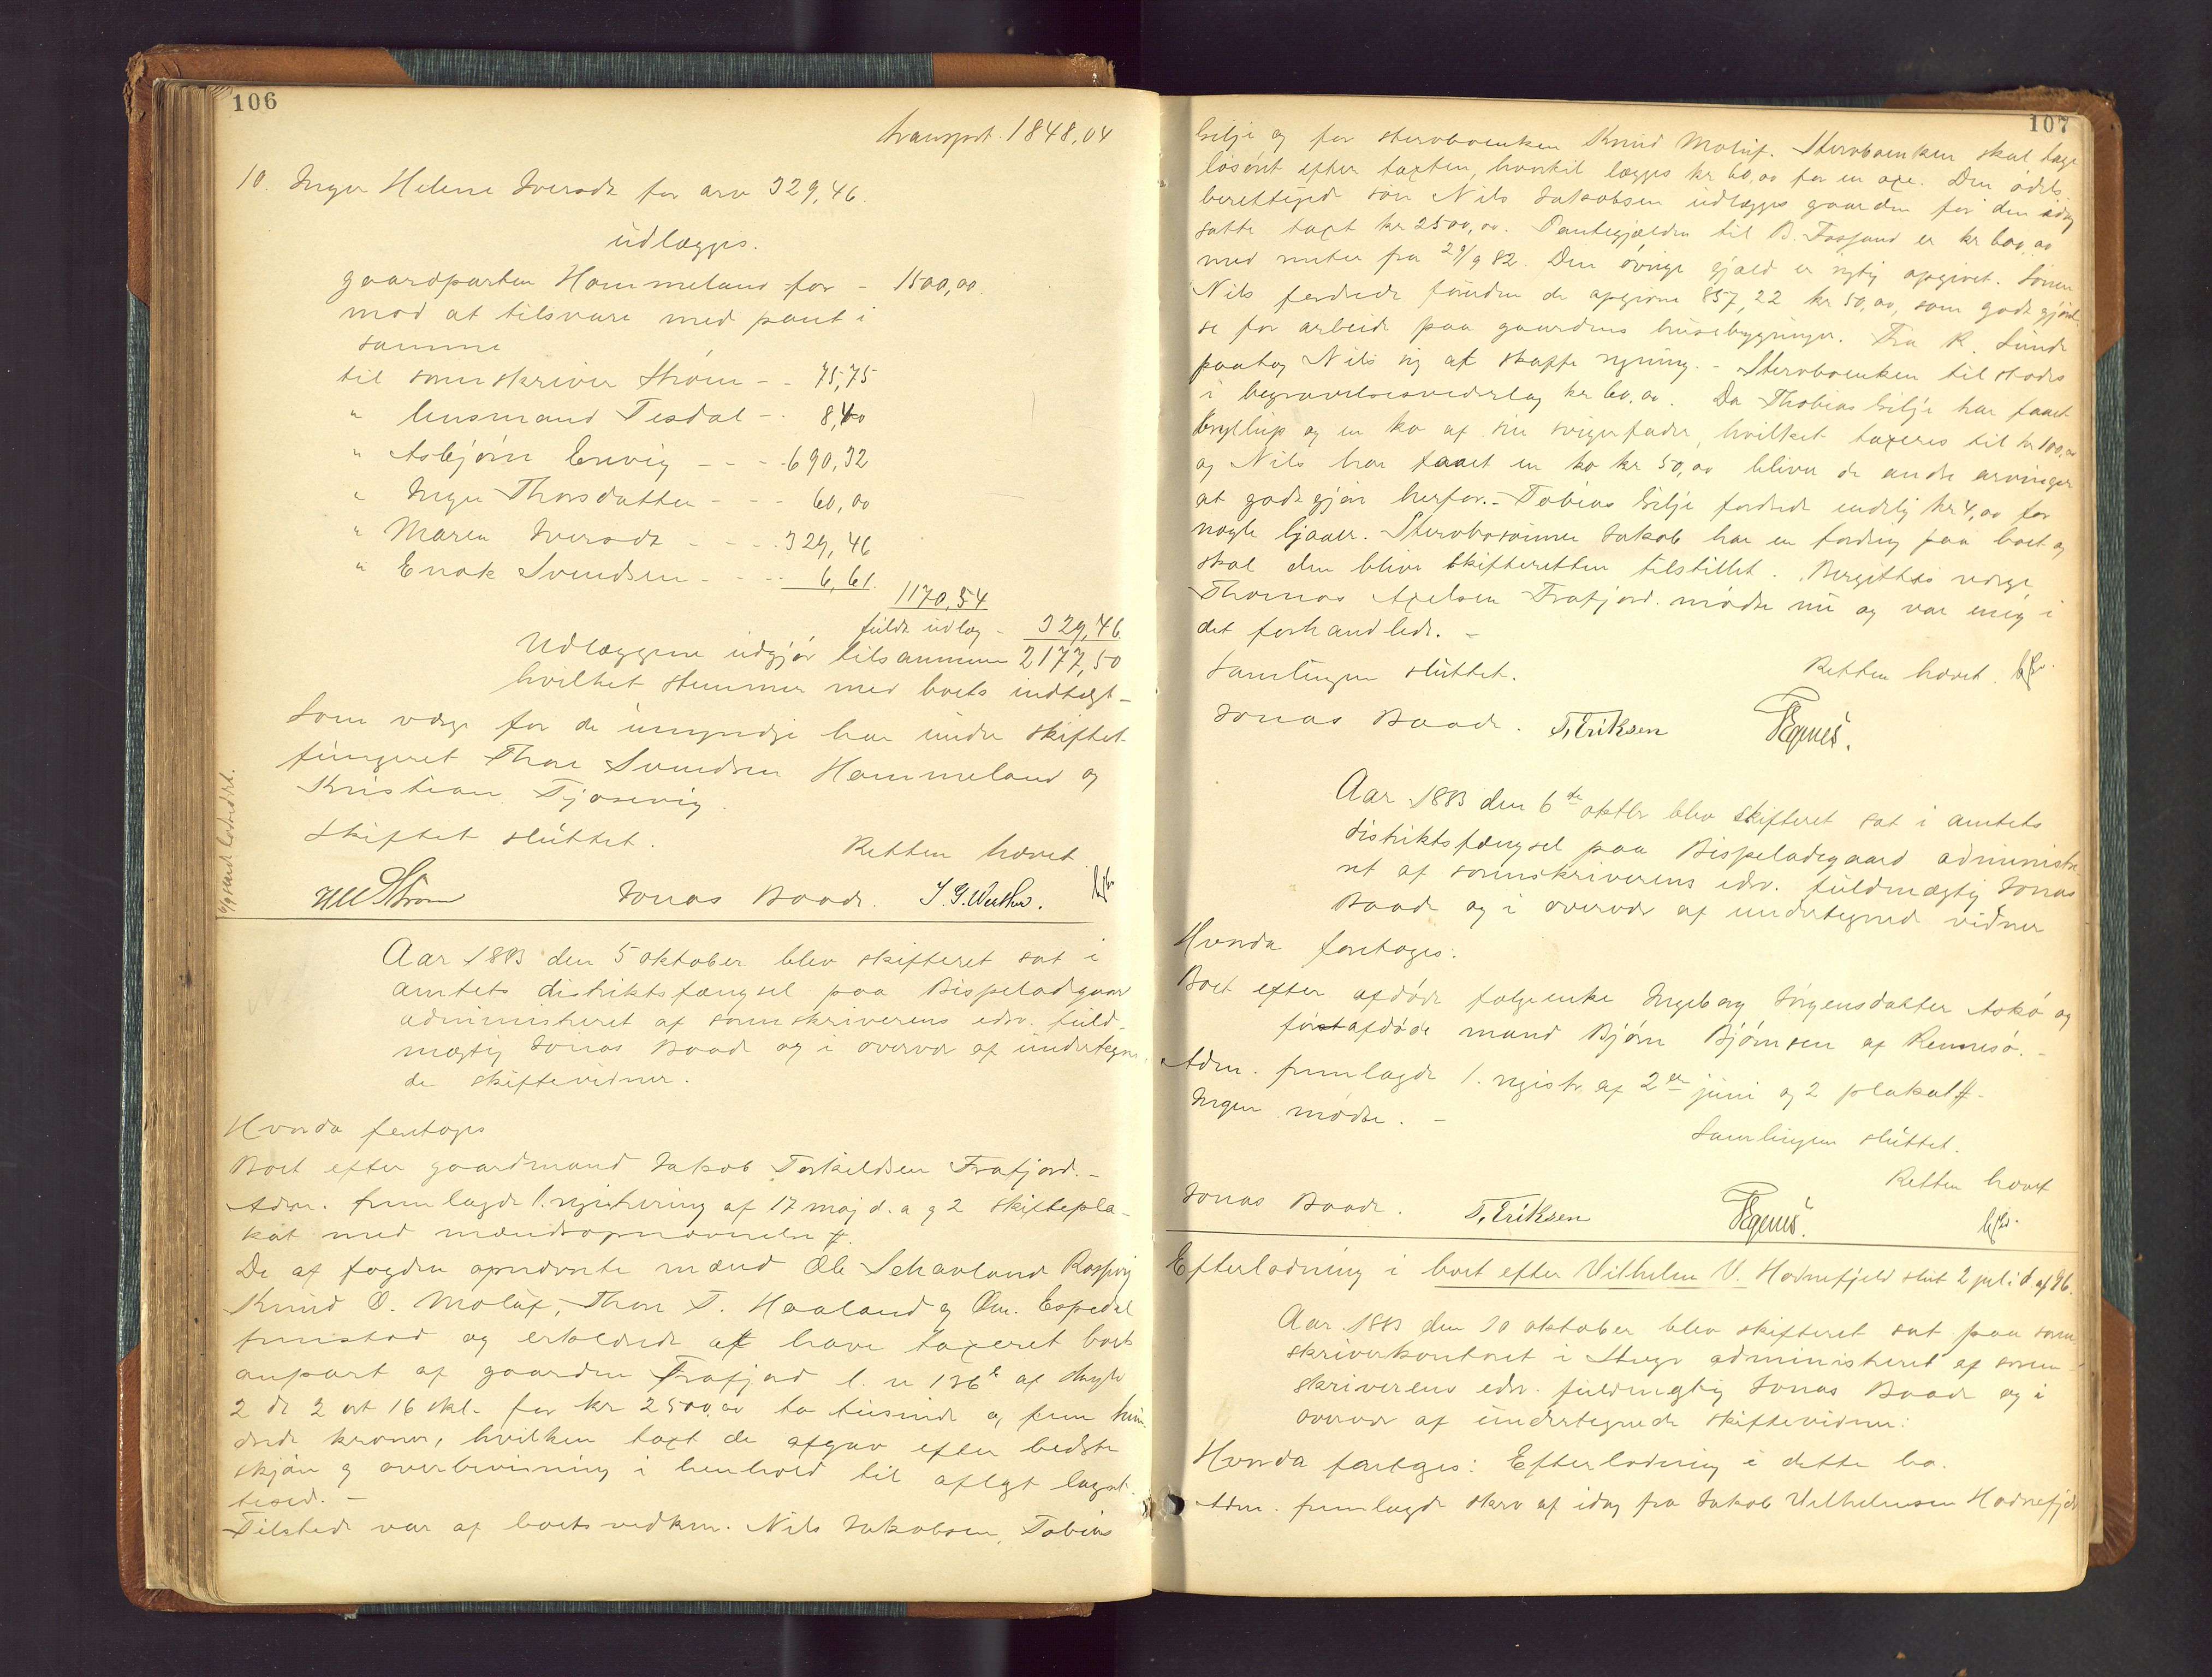 106
transprt. 1848,04
10. Inger Helene Iversdt for arv 329,46.
udlægges.
gaardparten Hammeland for - 1500,00
mod at tilsvare med pant i
samme
til sorenskriver Strøm - - 75,75
" lensmand Tesdal - - 8,40
" Asbjørn Ervig - - - 690,32
" Inger Thorsdatter - - - 60,00
" Maren Iversdt - - - - 329,46
" Enok Svendsen - - - - 6,61
1170,54
fuldt udlæg - 329,46
Udlæggene udgjør tilsammen 2177,50
hvilket stemmer med boets indtægt -
Som værge for de umyndige har under skiftet
fungeret Thore Svendsen Hammeland og
Kristian Tjosevig.
Skiftet sluttet.
Retten hævet
Strøm Jonas Baade.
Aar 1883 den 5 oktober blev skifteret sat i
amtets distriktsfængsel paa Bispeladegaard
administreret af sorenskriverens edsv. fuld-
mægtig Jonas Baade og i overvær af undertegne-
de skiftevidner.
Hvorda foretoges
Boet efter gaardmand Jakob Torkildsen Frafjord. -
Adm. fremlagde 1. registrering af 17 maj d. a og 2 skiftepla-
kat med mændsopnævnelse #.
De af fogden opnævnte mænd Ole Schavland
Knud O. Molaf, Thore T. Haaland og Espedal
fremstod og erklærede at have taxeret boets
anpart af gaarden Frafjord l. n 136 b af skyld
2 dr 2 ort 16 skl. for kr 2500,00 to tusinde og fem hun-
drede kroner, hvilken taxt de afgav efter bedste
skjøn og overbevisning i henhold til aflagt lagret-
tesed. -
Tilstede var af boets vedkm. Nils Jakobsen, Tobias
107
Gilje og for stervboenken Knud Molaf. Stervboenken skal tage
løsøret efter taxten, hvortil lægges kr 60,00 for en oxe. Den odels-
berettigede søn Nils Jakobsen udlægges gaarden for den idag
satte taxt kr 2500,00. Pantegjælden til B. Fossand er kr 600,00
med renter fra 29/9 82. Den øvrige gjæld er rigtig opgivet. Sønnen
Nils fordrede foruden de opgivne 857,22 kr 50,00, som godtgjørel-
se for arbeide paa gaardens husebygninger. Fra R. Lunde
paatog Nils sig at skaffe regning. - Stervboenken tilstodes
i begravelsesvederlag kr 60,00. Da Thobias Gilje har faaet
bryllup og en ko af sin svigerfader, hvilket taxeres til kr 100,00
og Nils har faaet en ko kr 50,00 bliver de andre arvinger
at godtgjøre herfor. - Tobias Gilje fordrede endelig kr 4,00 for
nogle ljaaer. Stervbosønnen Jakob har en fordring paa boet og
skal den blive skifteretten tilstillet. Bergittes værge
Thomas Axelsen Frafjord. mødte nu og var enig i
det forhandlede. -
Samlingen sluttet.
Retten hævet.
Jonas Baade. T. Eriksen
Aar 1883 den 6te oktbr blev skifteret sat i amtets
distriktsfængsel paa Bispeladegaard administre-
ret af sorenskriverens edsv. fuldmægtig Jonas
Baade og i overvær af undertegned vidner
Hvorda foretoges:
Boet efter afdøde følgeenke Ingeborg Jørgensdatter Askø og
førstafdøde mand Bjørn Bjørnsen af Rennesø. -
Adm. fremlagde 1. registr. af 2den juni og 2 plakat #.
Ingen mødte. -
Samlingen sluttet.
Retten hævet
Jonas Baade. T. Eriksen
Efterlodning i boet efter Vilhelm V. Hodnefjeld slut 2 juli d. a f 86.
Aar 1883 den 10 oktober blev skifteret sat paa soren-
skriverkontoret i Stvgr administreret af soren-
skriverens edsv. fuldmægtig Jonas Baade og i
overvær af undertegnede skiftevidner:
Hvorda foretoges: Efterlodning i dette bo.
Adm. fremlagde skrv af idag fra Jakob Vilhelmsen Hodnefjeld